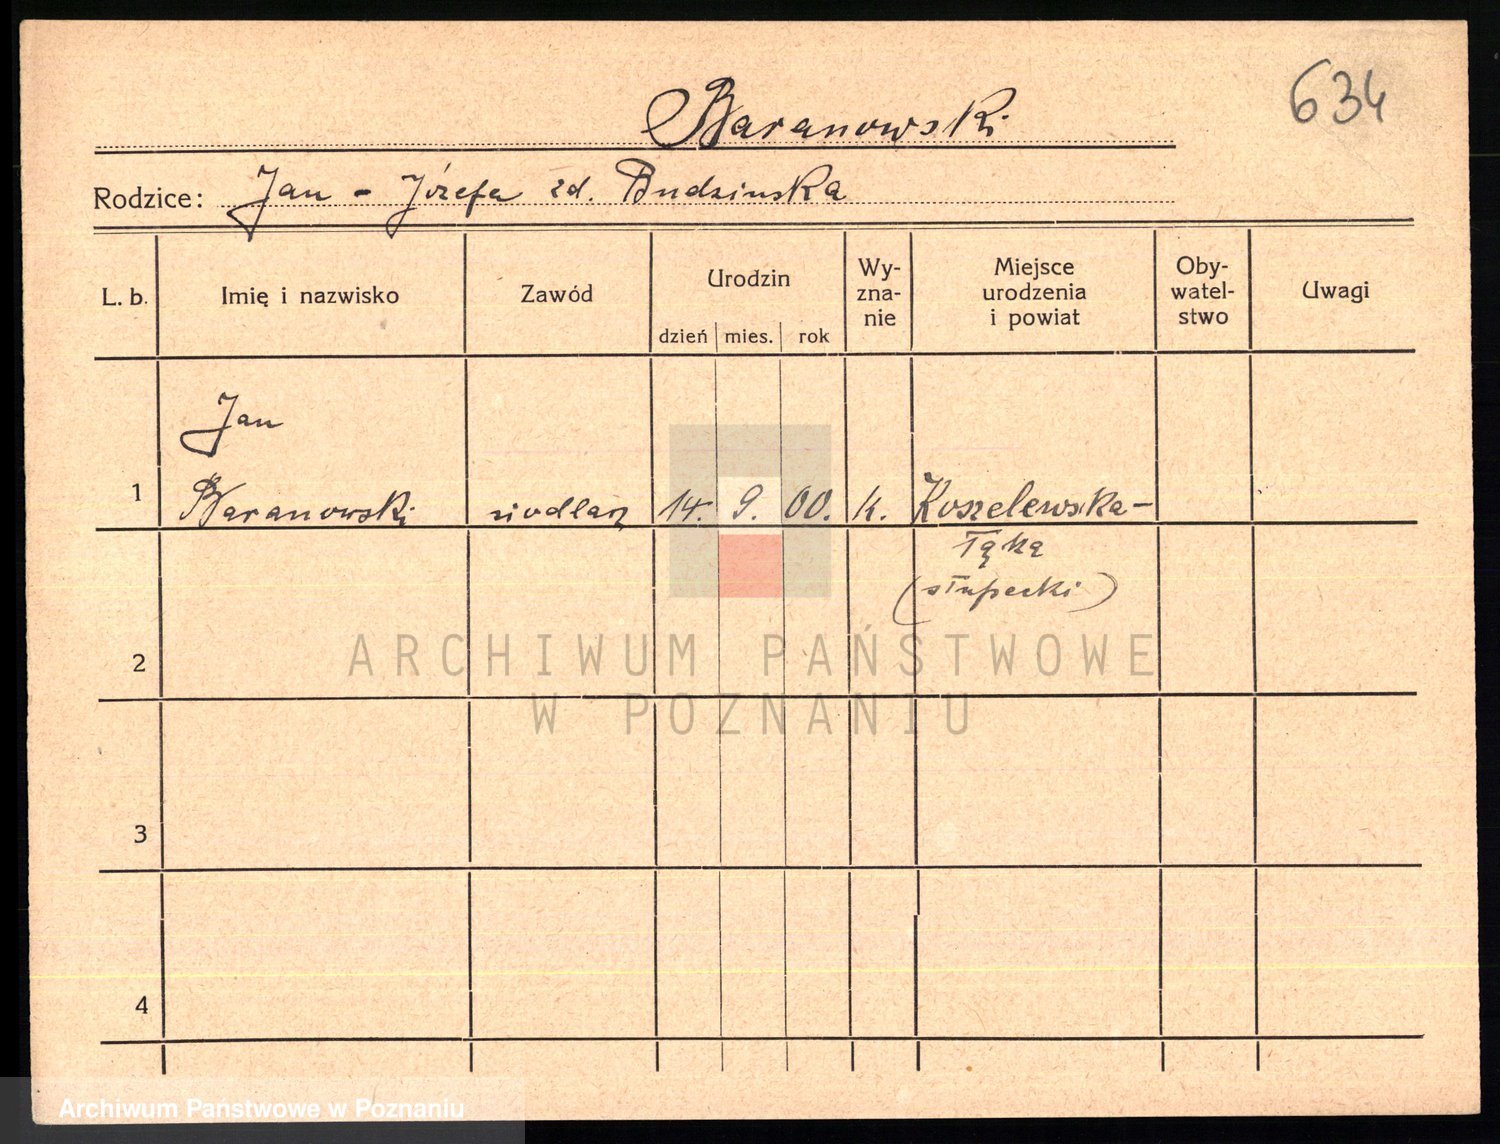 634
Baranowski
Rodzice: Jan - Józefa zd. Budzinska
L. b.
Imię i nazwisko
Zawód
Urodzin
dzień mies. rok
Wy-
zna-
nie
Miejsce
urodzenia
i powiat
Oby-
watel-
stwo
Uwagi
Jan
1 Baranowski siodlarz 14. 9. 00. k. Koszelewska-
Łąka
(słupecki)
2
3
4
ARCHIWUM PAŃSTWOWE
W POZNANIU
Archiwum Państwowe w Poznaniu